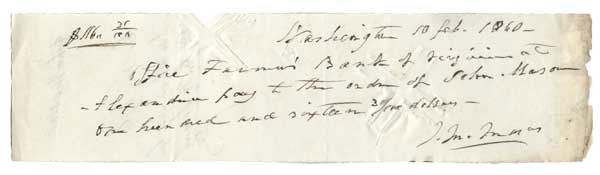 $116 25/100
Washington 10 feb. 1860—
Office Farmer's Bank of Virginia at
Alexandria pay to the order of John Mason
One hundred and sixteen 25/100 dollars—
J. M. Mason